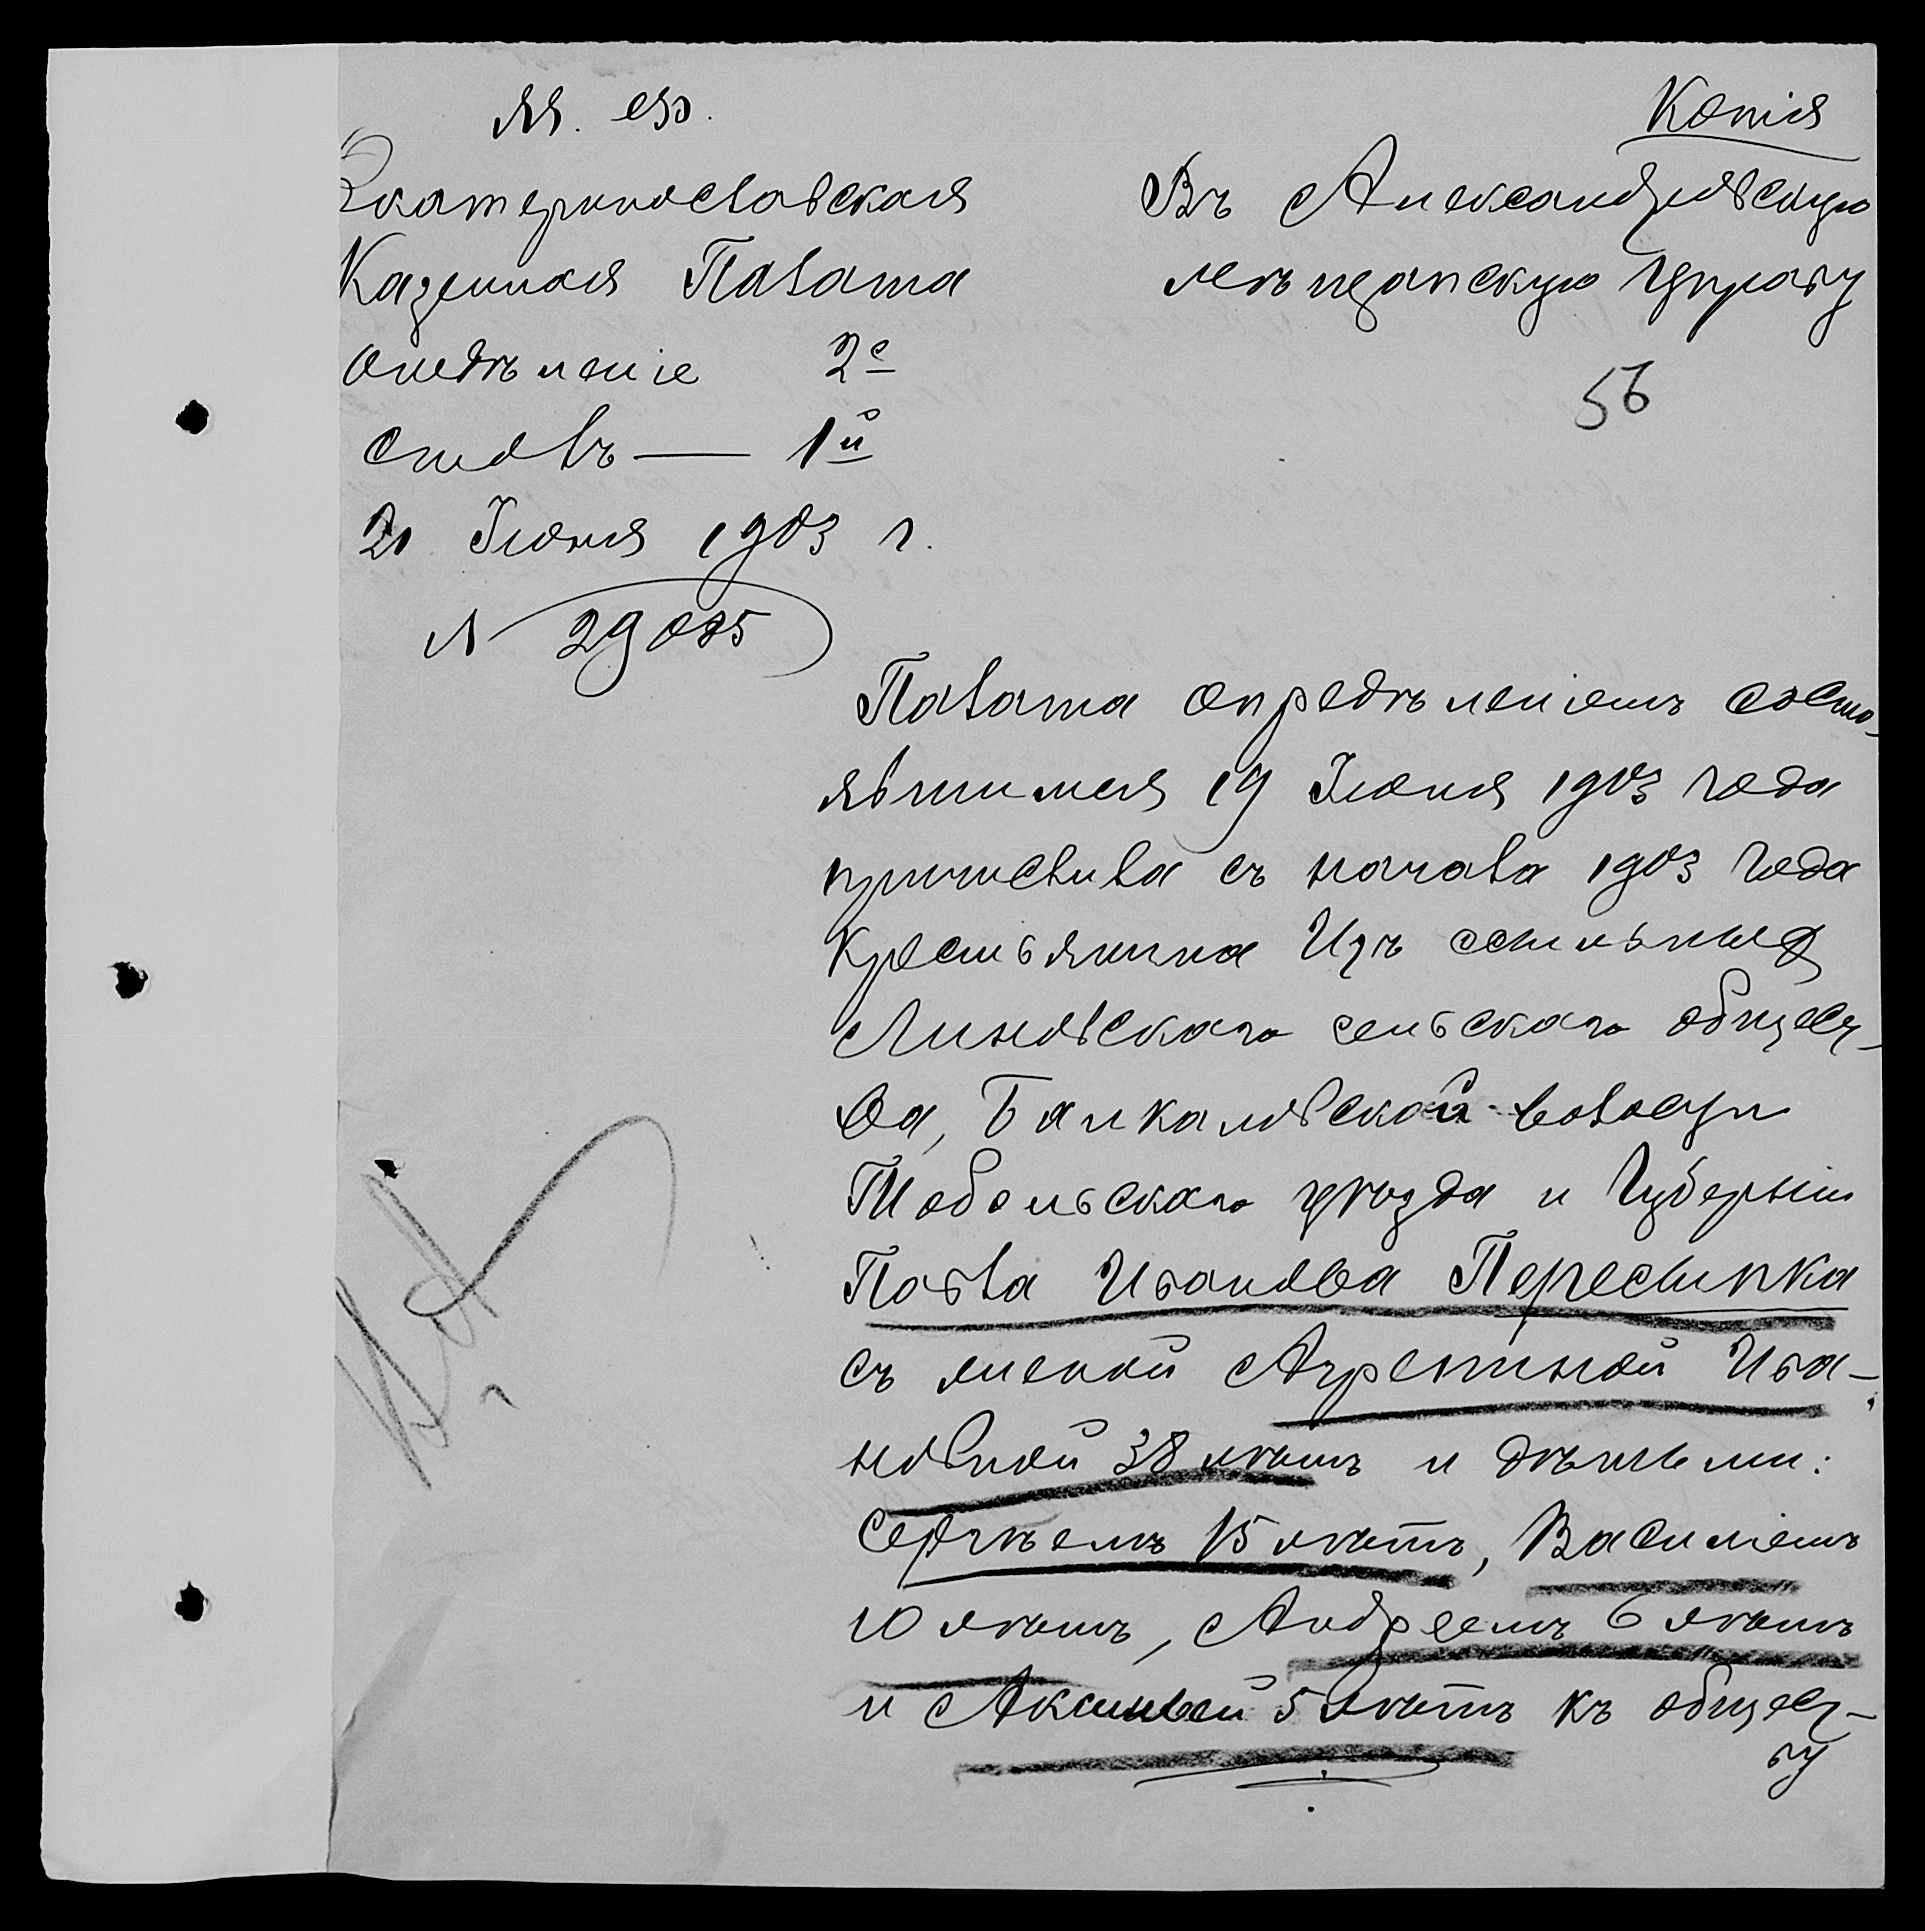 М. Ф.
Копія
Екатеринославская
Казенная Палата
Отдѣленіе 2е
Столъ — 1й
21 Іюня 1903 г.
№ 29085
Въ Александровскую
мѣщанскую Управу
56
Палата опредѣленіемъ состо-
явшимся 19 Іюня 1903 года
причислила съ начала 1903 года
крестьянина Изъ ссыльныхъ
Линовскаго сельскаго общест-
ва, Байкаловской волости
Тобольскаго уѣзда и Губерніи
Павла Иванова Пересыпка
съ женой Агрепиной Ива-
новной 38 лѣтъ и дѣтьми:
Сергѣемъ 15 лѣтъ, Василіемъ
10 лѣтъ, Андреемъ 6 лѣтъ
и Аксиньей 5 лѣтъ къ общест-
ву